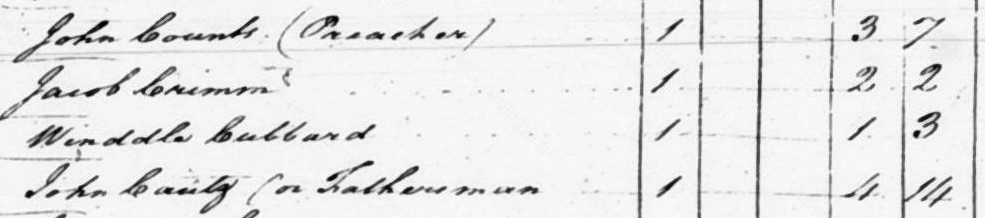 John Counts (Preacher) 1 3 7
Jacob Crimm 1 2 2
Winddle Cubbard 1 1 3
John Cautz (or Fathersman 1 4 14